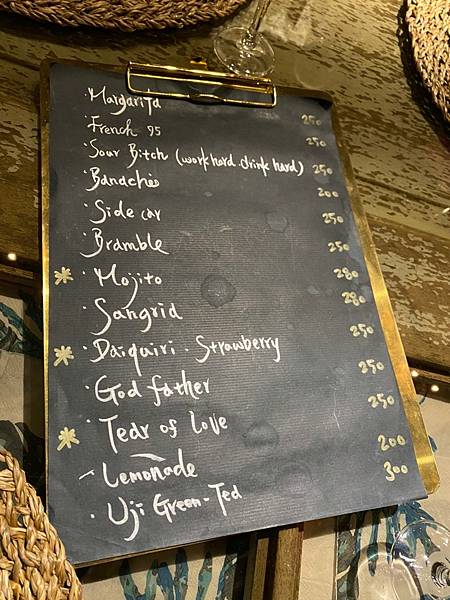 · Margarita 250
· French 95 250
· Sour Bitch (work hard. drink hard) 250
· 200
· Side car 250
· Bramble 250
* · Mojito 280
· Sangria 280
* · Daiquiri · Strawberry 250
· God father 250
* · Tear of Love 250
- Lemonade 200
· Uji Green-Tea 300